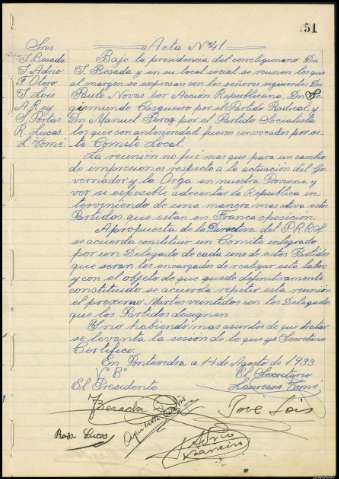 51
Sres Acta Nº 41
J. Besada Bajo la presidencia del correligionario Dn
J. Adrio J. Besada y en su local social se reunen los que
F. Olero al margen se expresan con los señores siguientes Dn
J. Lois Paulo Novas por Acción Republicana, Dn
A. Rey Cerqueiro por el Partido Radical y
S. Poetas Dn Manuel por el Partido Socialista
R. Lucas los que con anterioridad fueron convocados por es-
L. Tomé te Comité Local.
La reunión no fué mas que para un cambio
de impresiones respecto a la actuación del Go-
vernador y la Orga en nuestra Provincia y
ver si es posible adecentar la Republica in-
terviniendo de una manera mas activa esto
Partidos que estan en franca oposición.
A propuesta de la Directiva del P.R.R.S.
se acuerda constituir un Comité integrado
por un Delegado de cada uno de estos Partidos
que seran los encargados de realizar esta labor
y con el objeto de que quede definitivamente
constituido se acuerda repetir esta reunión
el proximo Martes veintidos con los Delegados
que los Partidos designen
Y no habiendo mas asuntos de que tratar
se levanta la sesión de lo que yo Secretario
Certifico.
En Pontevedra a 14 de Agosto de 1933
Vº Bº El Secretario
El Presidente Laureano Tomé
J Besada José Lois
Rogo Lucas
Adrio